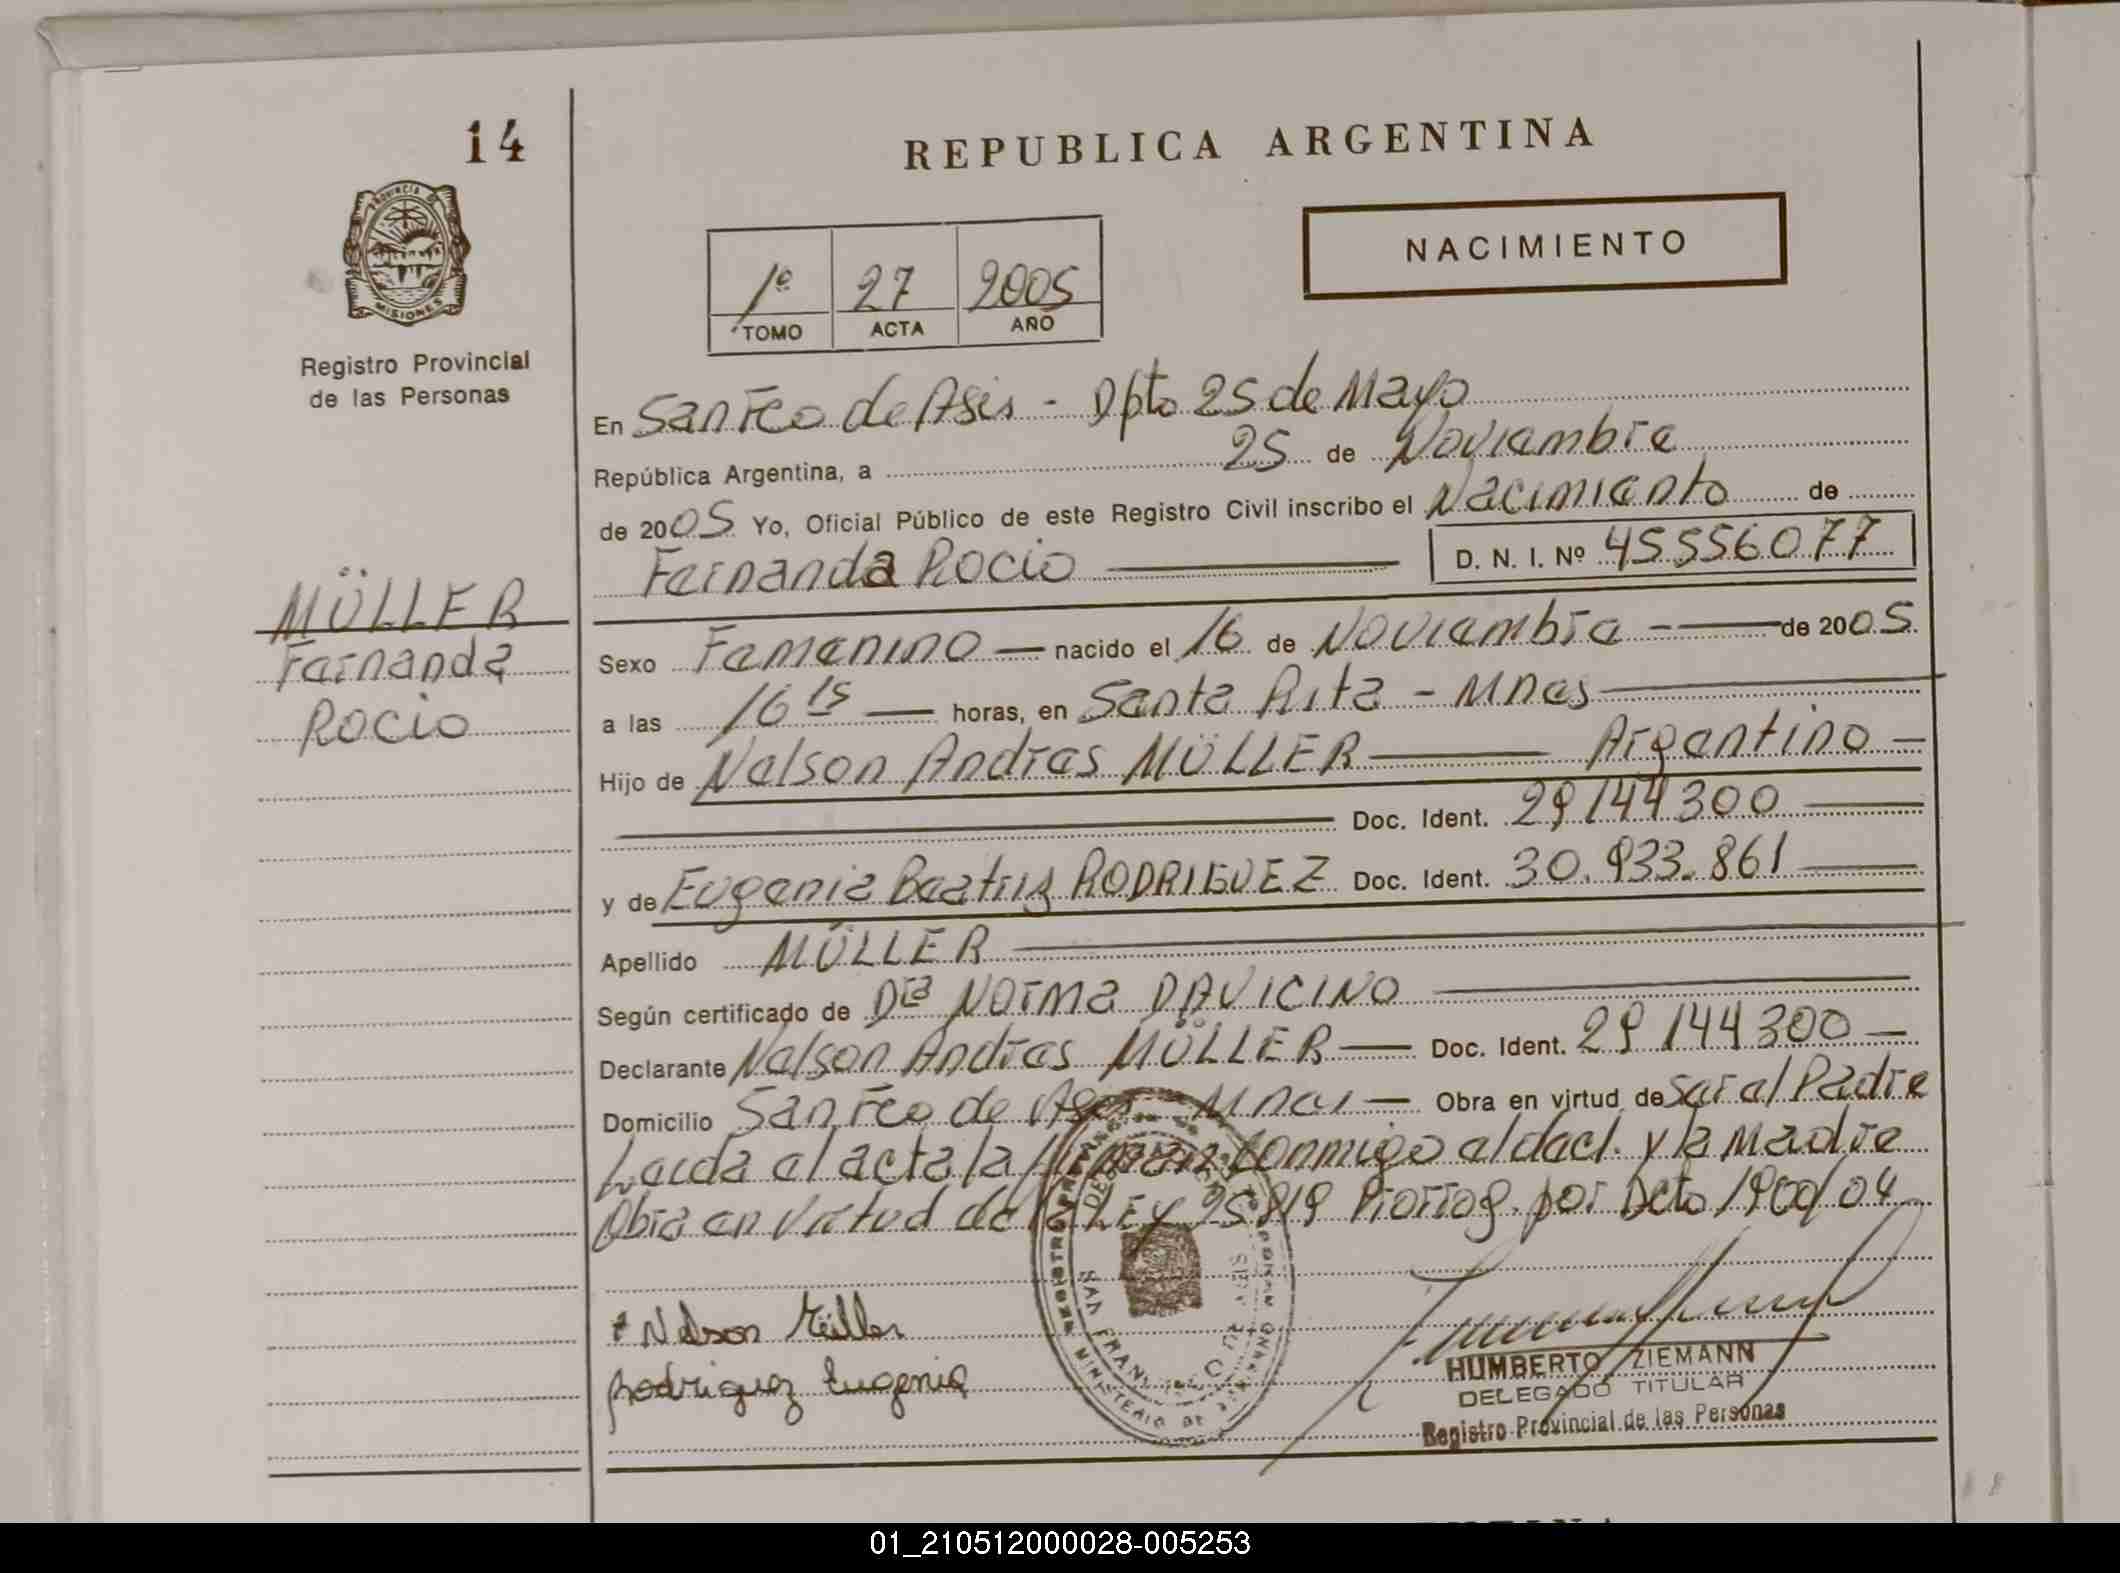 14
REPUBLICA ARGENTINA
PROVINCIA DE
MISIONES
NACIMIENTO
1º 27 2005
TOMO ACTA AÑO
Registro Provincial
de las Personas
En San Fco de Asis - Dpto 25 de Mayo
República Argentina, a 25 de Noviembre
de 2005 Yo, Oficial Público de este Registro Civil inscribo el Nacimiento de
Fernanda Rocio D. N. I. Nº 45556077
MÜLLER
Fernanda
Rocio
Sexo Femenino nacido el 16 de Noviembre de 2005
a las 16 15 horas, en Santa Rita - Mnes
Hijo de Nelson Andres MÜLLER Argentino
Doc. Ident. 29144300
y de Eugenia Beatriz RODRIGUEZ Doc. Ident. 30.933.861
Apellido MÜLLER
Según certificado de Dra Norma DAVICINO
Declarante Nelson Andres MÜLLER Doc. Ident. 29144300
Domicilio San Fco de Asis Mnes Obra en virtud de Ser el Padre
Leida el acta la firman conmigo el decl. y la Madre
Obra en virtud de la LEY 25819 Prorrog. por Dcto 1900/04
Nelson Müller
Rodriguez Eugenia
HUMBERTO ZIEMANN
DELEGADO TITULAR
Registro Provincial de las Personas
01_210512000028-005253